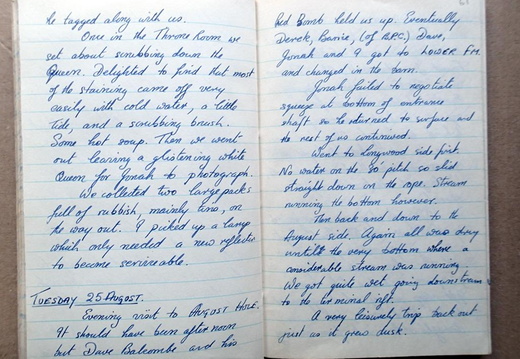 he tagged along with us.
Once in the Throne Room we
set about scrubbing down the
Queen. Delighted to find that most
of the staining came off very
easily with cold water, a little
Tide, and a scrubbing brush.
Some hot soup. Then we went
out leaving a glistening white
Queen for Jonah to photograph.
We collected two large packs
full of rubbish, mainly tins, on
the way out. I picked up a lamp
which only needed a new reflector
to become serviceable.
TUESDAY 25 AUGUST.
Evening visit to AUGUST HOLE.
It should have been afternoon
but Dave Balcombe and his
Red Bomb held us up. Eventually
Derek, Barrie, (of B.P.C.) Dave,
Jonah and I got to LOWER FM.
and changed in the barn.
Jonah failed to negotiate
squeeze at bottom of entrance
shaft so he returned to surface and
the rest of us continued.
Went to Longwood side first.
No water on the 30 pitch so slid
straight down on the rope. Stream
running the bottom however.
Then back and down to the
August side. Again all was dry
until the very bottom where a
considerable stream was running.
We got quite wet going downstream
to the terminal rift.
A very leisurely trip back out
just as it grew dusk.